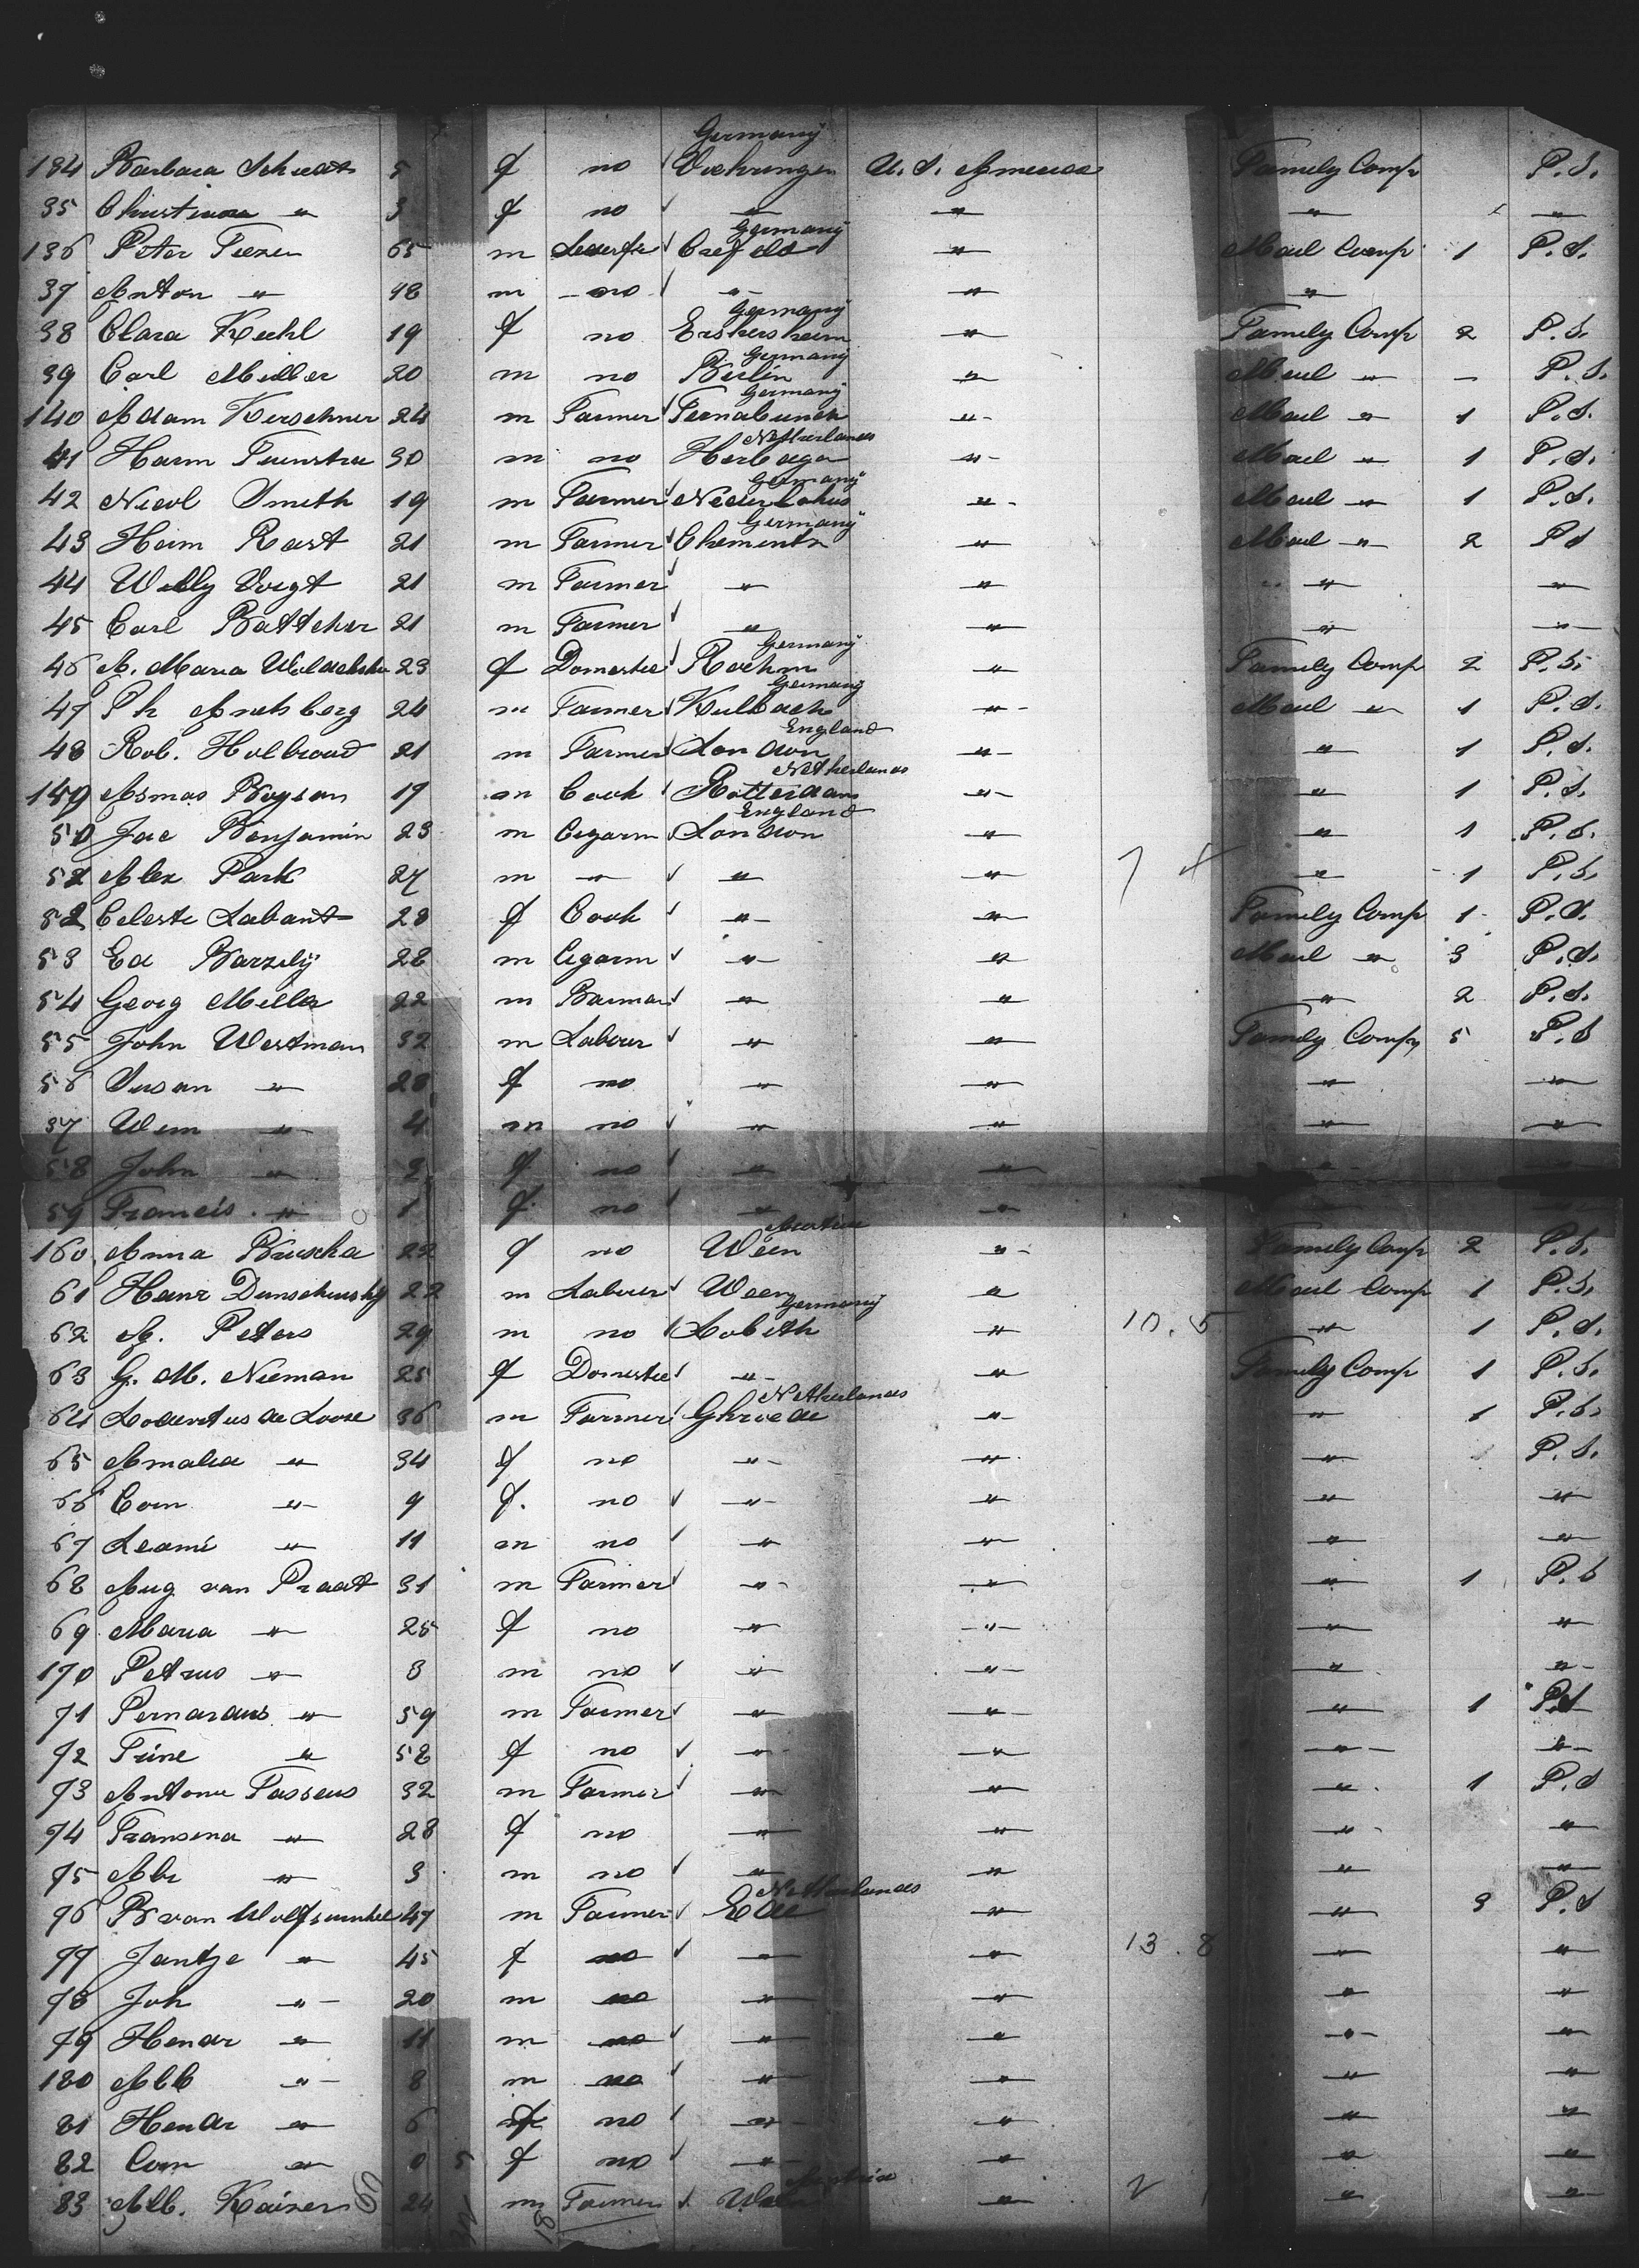 Germany
134 Barbara Schust 5 f no Voehringen U. S. America Family Comp P. S.
35 Christiana " 3 f no " " " "
Germany
136 Peter 65 m Crefeld " Mail Comp 1 P. S.
37 Anton " 48 m no " " "
Germany
38 Clara Kuhl 19 f no " Family Comp 2 P. S.
Germany
39 Carl Miller 20 m no Berlin " Mail " - P. S.
Germany
140 Adam Kerschner 24 m Farmer " Mail " 1 P. S.
Netherlands
41 Harm Tuinstra 30 m no " Mail " 1 P. S.
Germany
42 Nicol Smith 19 m Farmer " Mail " 1 P. S.
Germany
43 Heim Rast 21 m Farmer Chemnitz " Mail " 2 P S
44 Willy Voigt 21 m Farmer " " " "
45 Carl Battcher 21 m Farmer " " " "
Germany
46 A. Maria 23 f Domestic " Family Comp 2 P. S.
Germany
47 Ph 24 m Farmer Kulbach " Mail " 1 P. S.
England
48 Rob. Holbroad 21 m Farmer London " " 1 P. S.
Netherlands
149 Asmas Boysan 19 m Cook Rotterdam " " 1 P. S.
England
50 Jac Benjamin 23 m Cigarm London " " 1 P. S.
51 Alex Park 27 m " " " 7 " 1 P. S.
52 Celeste Labant 28 f Cook " " Family Comp 1 P. S.
53 Ed Barzily 28 m Cigarm " " Mail " 3 P. S.
54 Georg Miller 22 m Barman " " " 2 P. S.
55 John Westman 32 m Labour " " Family Comp 5 P. S
56 Susan " 28 f no " " " "
57 Wem " 4 m no " " " "
58 John " 2 f no " " "
59 Francis " 1 f no " "
Austria
160 Anna Bruscha 22 f no Wien " Family Comp 2 P. S.
61 Heinr 22 m Labour Wien " Mail Comp 1 P. S.
Germany
62 A. Peters 29 m no Lobith " 10. 5 " 1 P. S.
63 G. M. Nieman 25 f Domestic " " Family Comp 1 P. S.
Netherlands
64 de Loose 36 m Farmer " " 1 P. S.
65 Amalia " 34 f no " " " P. S.
66 Corn " 9 f. no " " " "
67 " 11 m no " " " "
68 Aug van Praat 31 m Farmer " " " 1 P. S
69 Maria " 25 f no " " " "
170 Petrus " 3 m no " " " "
71 Pernardus " 59 m Farmer " " " 1 P. S
72 Trine " 58 f no " " " "
73 Antonu Tasseus 32 m Farmer " " " 1 P. S
74 Fransena " 28 f no " " " "
75 Abr " 3 m no " " " "
Netherlands
76 B van 47 m Farmer Ede " " 3 P. S
77 Jantje " 45 f no " " 13. 8 " "
78 Joh " 20 m no " " " "
79 Hendr " 11 m no " " " "
180 Alb " 8 m no " " " "
81 Hendr " 6 f no " " " "
82 Corn " 0 5 f no " " " "
Austria
83 Alb. Kaiser 24 m Farmer " 2 " "